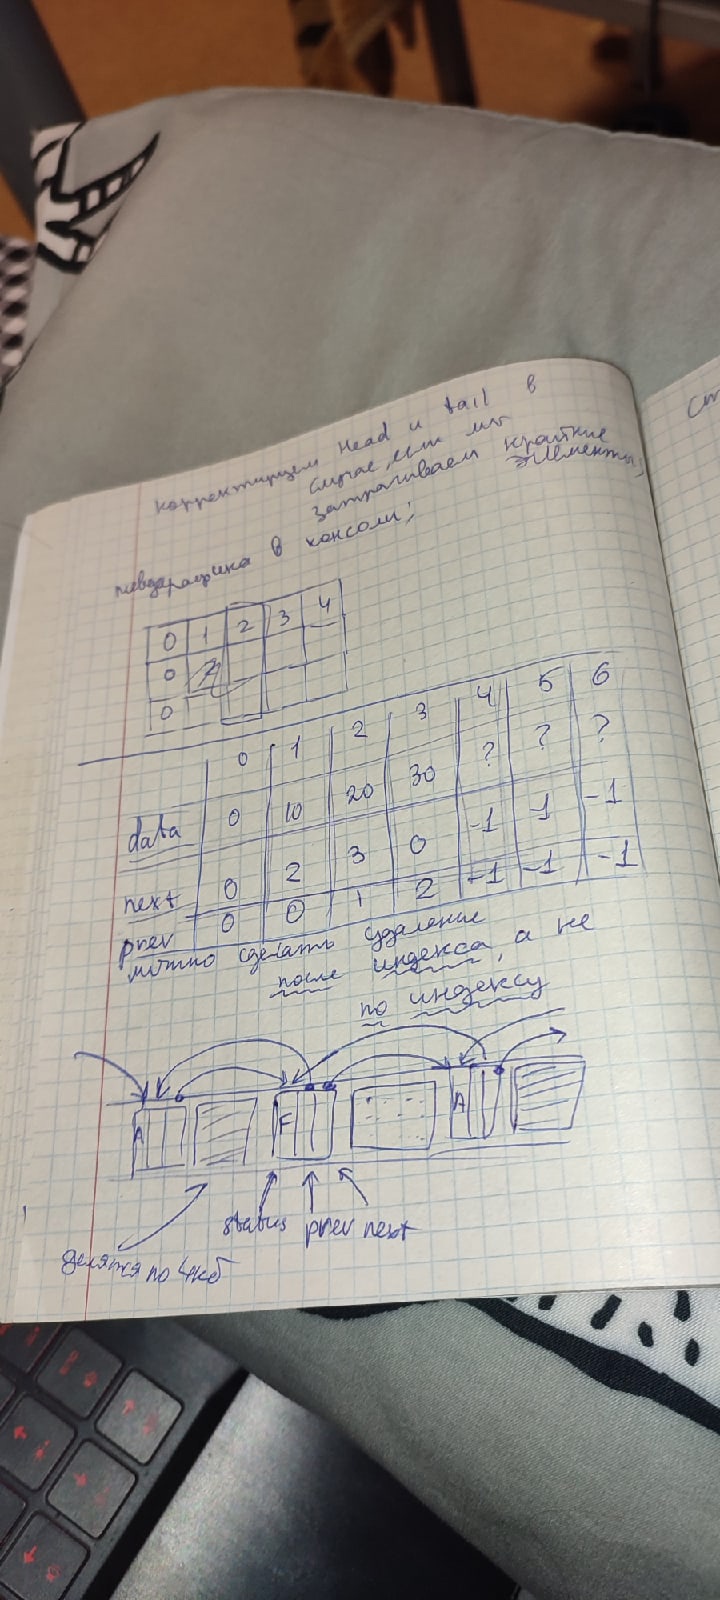 корректируем Head и tail в
случае, если мы
затрагиваем крайние
элементы;
в консоли;
0 1 2 3 4
0
0
0 1 2 3 4 5 6
data 0 10 20 30 ? ? ?
next 0 2 3 0 -1 -1 -1
prev 0 0 1 2 -1 -1 -1
можно сделать удаление
после индекса, а не
по индексу
A F A
status prev next
делятся по 4кб
Ст